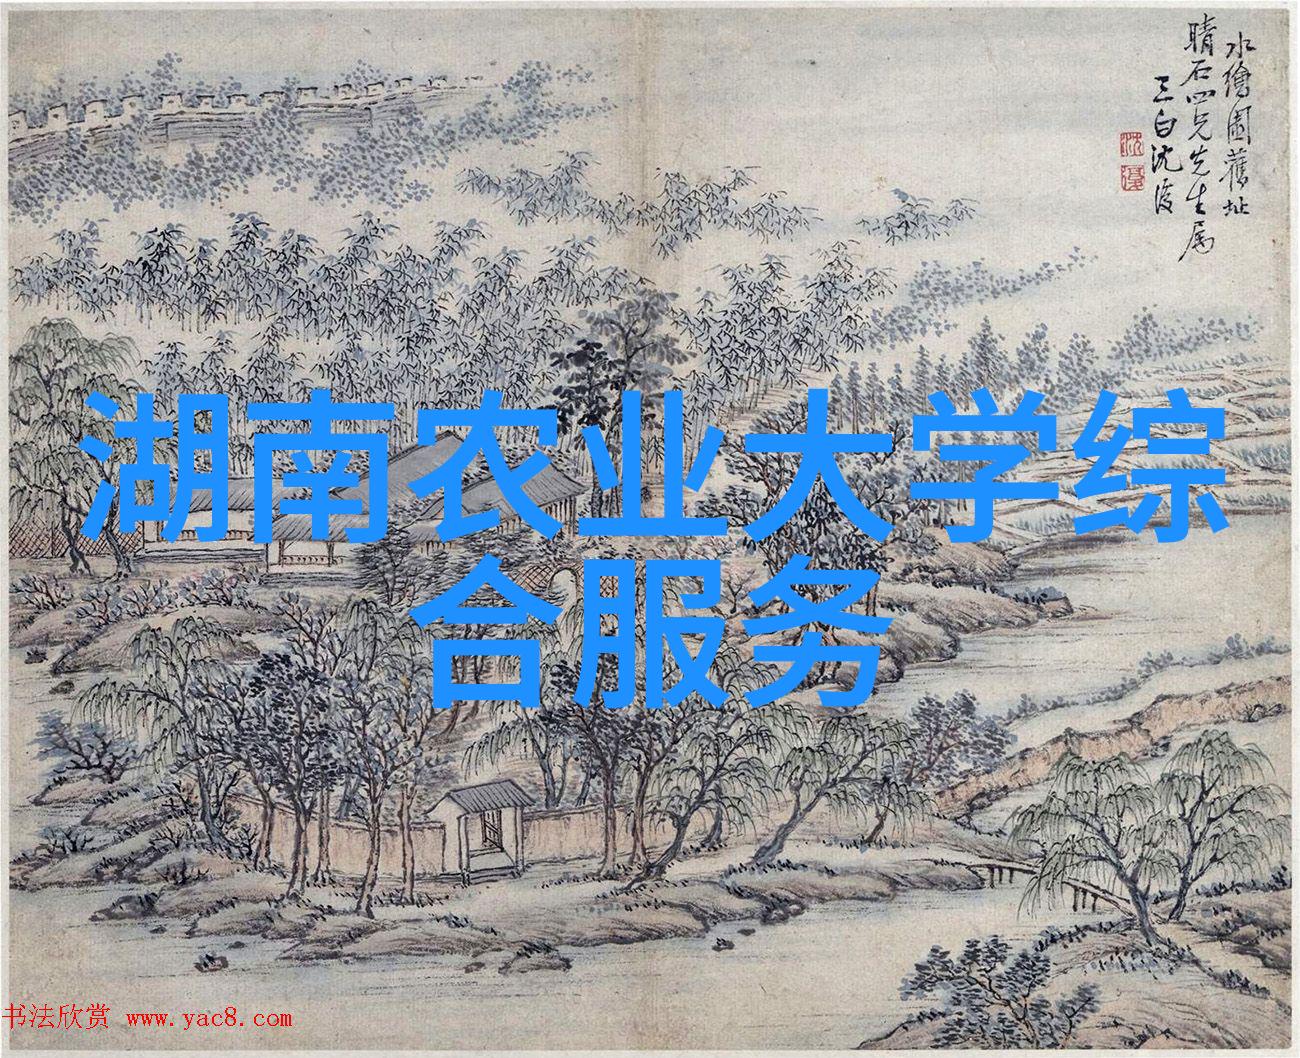 水繪園舊址
晴石四兄先生属
三白沈复
沈
復
湖南农业大学综
合服务
书法欣赏 www.yac8.com